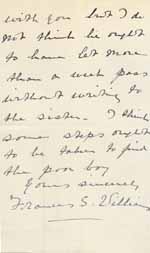 with you but I do
not think he ought
to have let more
than a week pass
without writing to
the sister. I think
some steps ought
to be taken to find
the poor boy
Yours sincerely
Frances S.